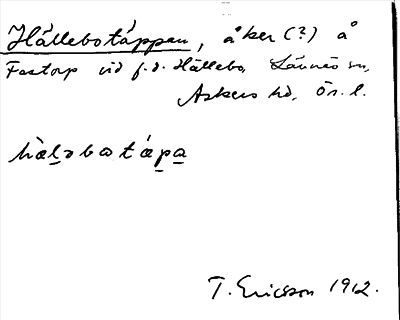 Hållebotäppan, åker (?) å
Fastorp vid f.d. Hållebo, Lännäs sn,
Askers hd, Ör. l.
hàləbatápa
T. Ericsson 1912.